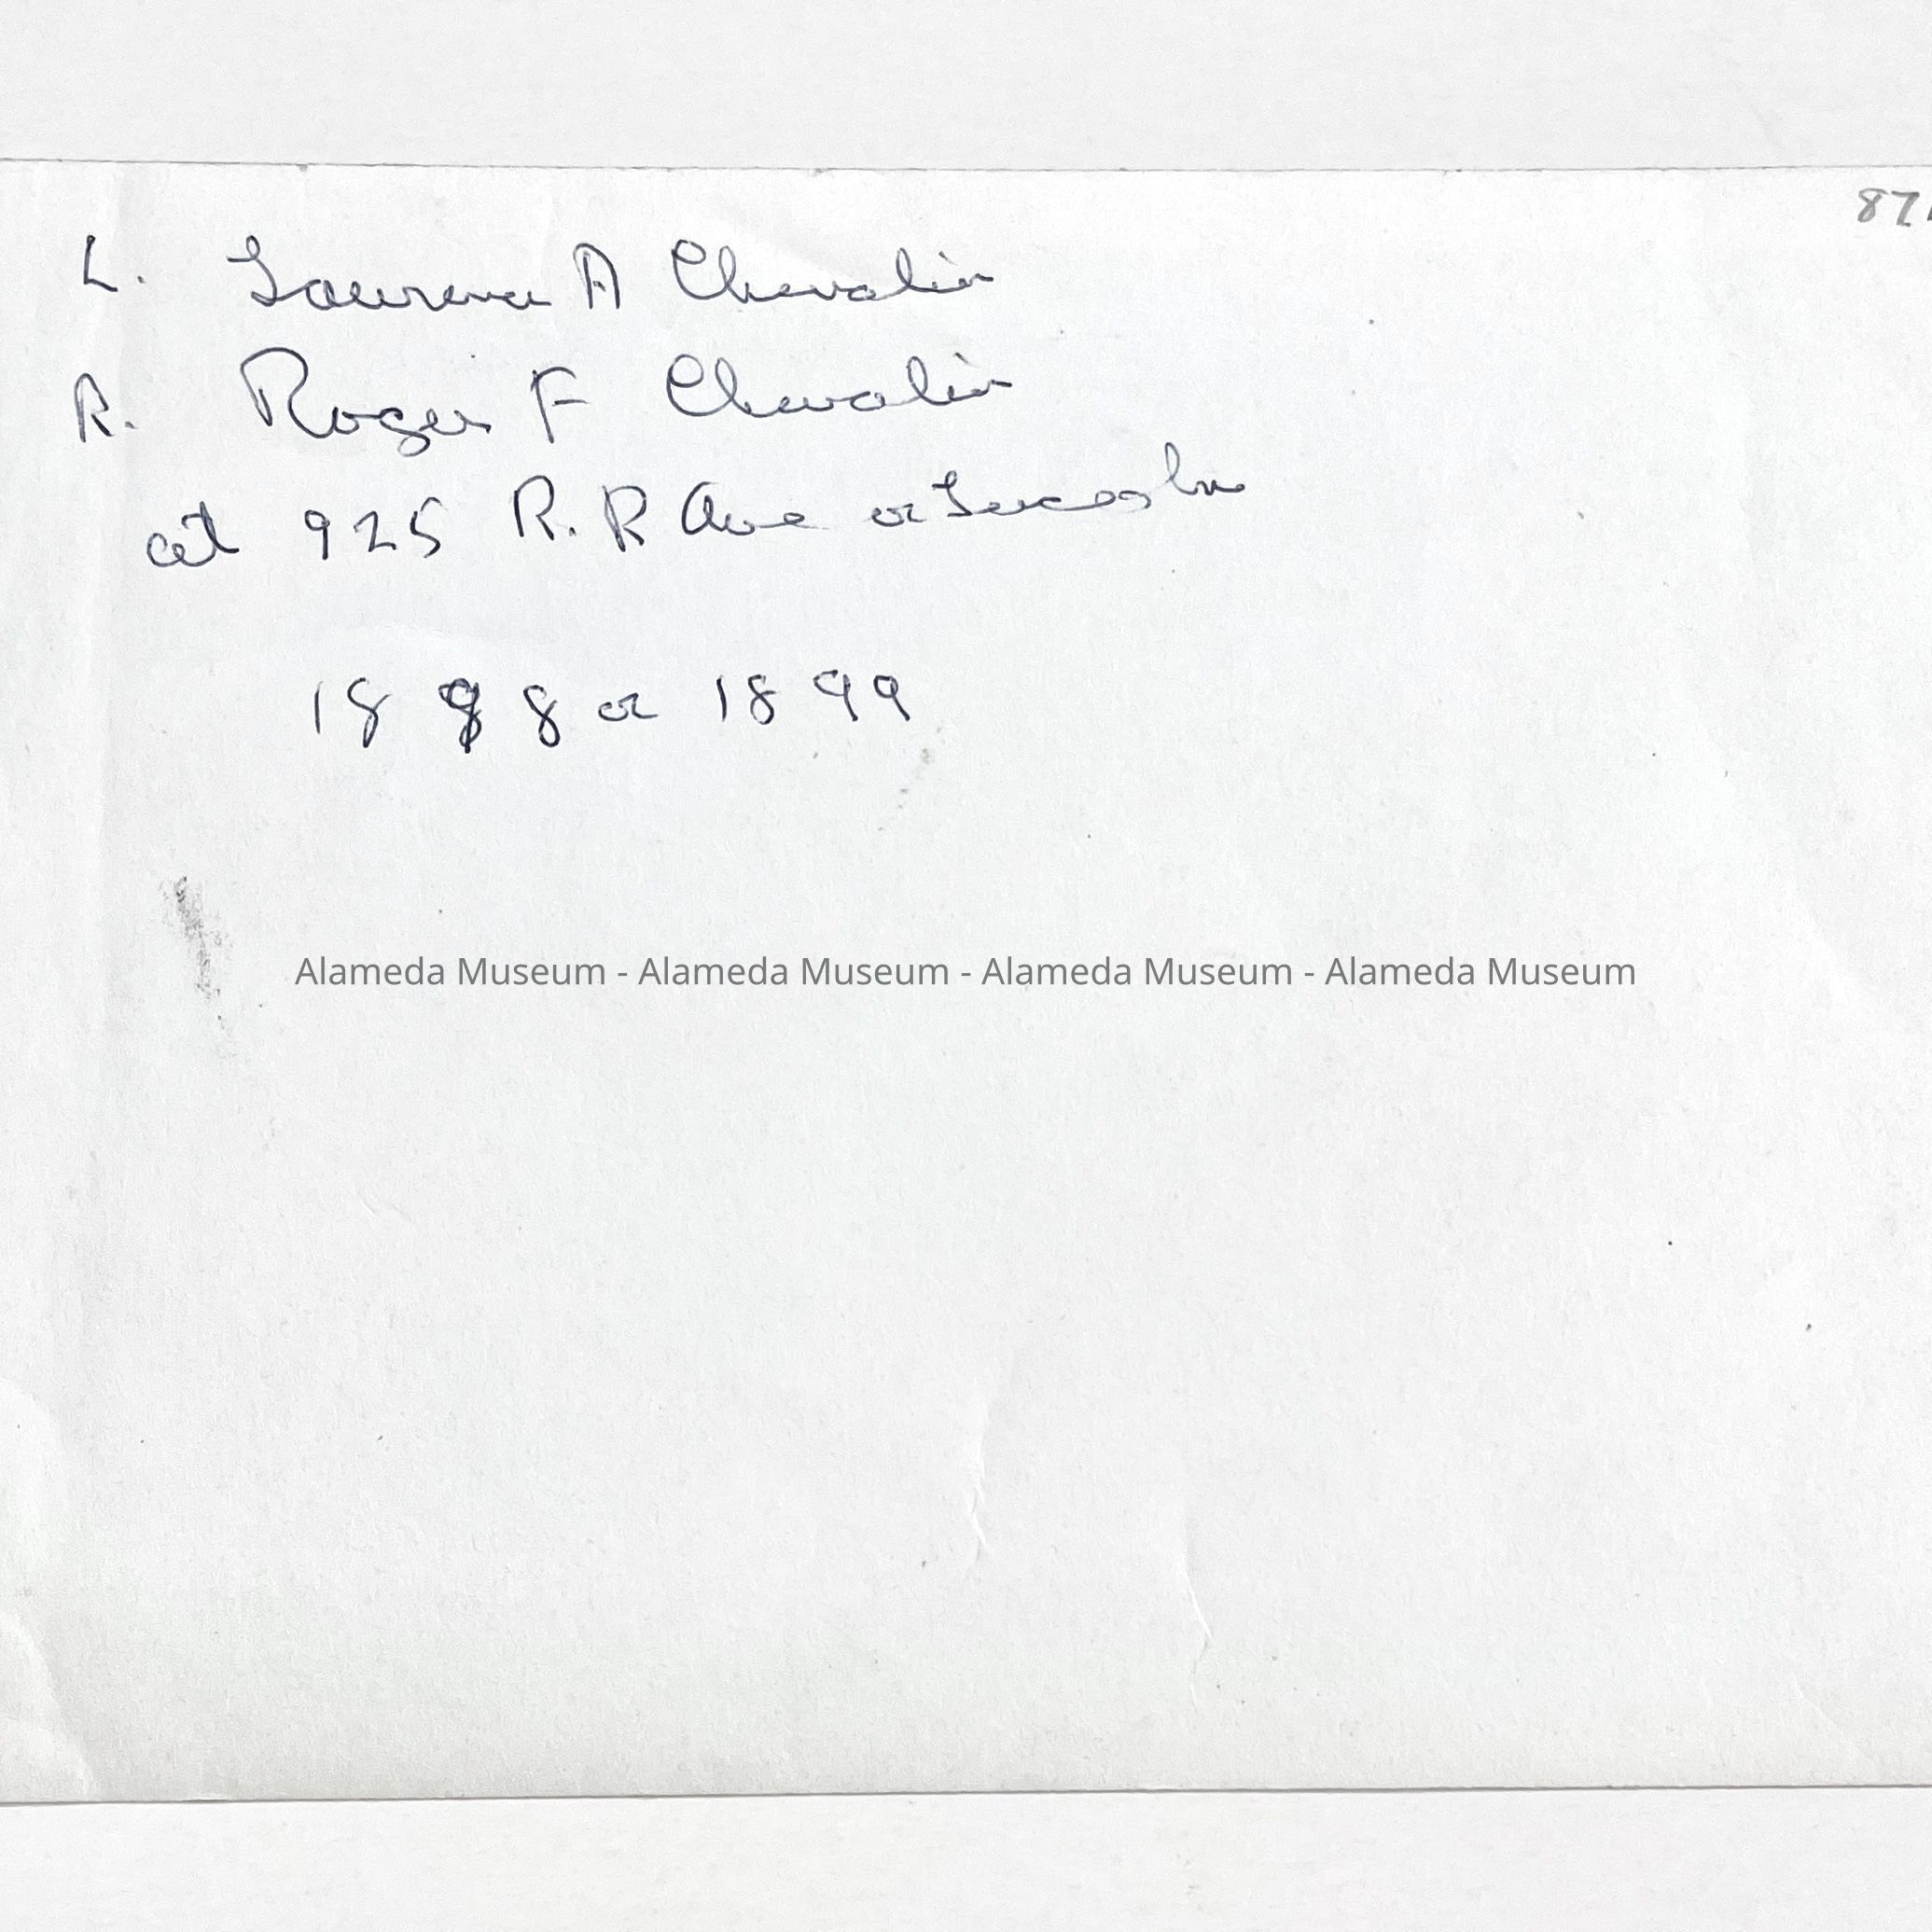 87
L. Laurence A Chevalier
R. Roger F Chevalier
at 925 R.R Ave or
1898 or 1899
Alameda Museum - Alameda Museum - Alameda Museum - Alameda Museum